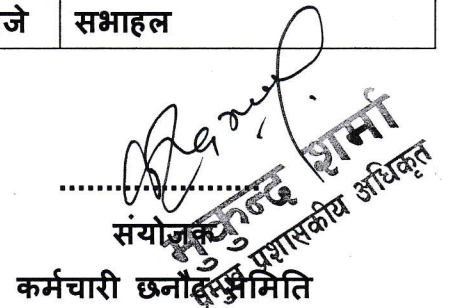 जे सभाहल
संयोजक
कर्मचारी छनौट समिति
मुकुन्द शर्मा
प्रमुख प्रशासकीय अधिकृत